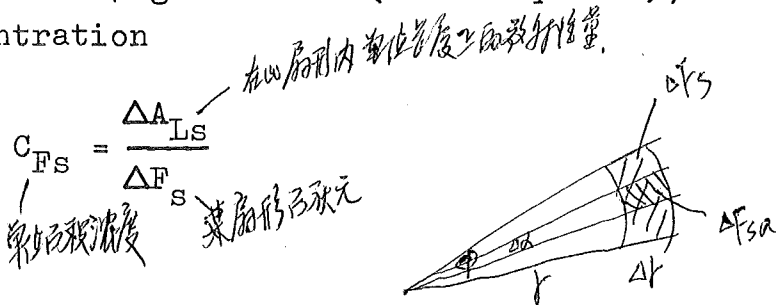 ntration
在此扇形内单位长度上的放射性量.
C_Fs = ΔA_Ls / ΔF_s
单位面积浓度
某扇形面积元
ΔFs
φ
Δα
r
Δr
ΔFsα